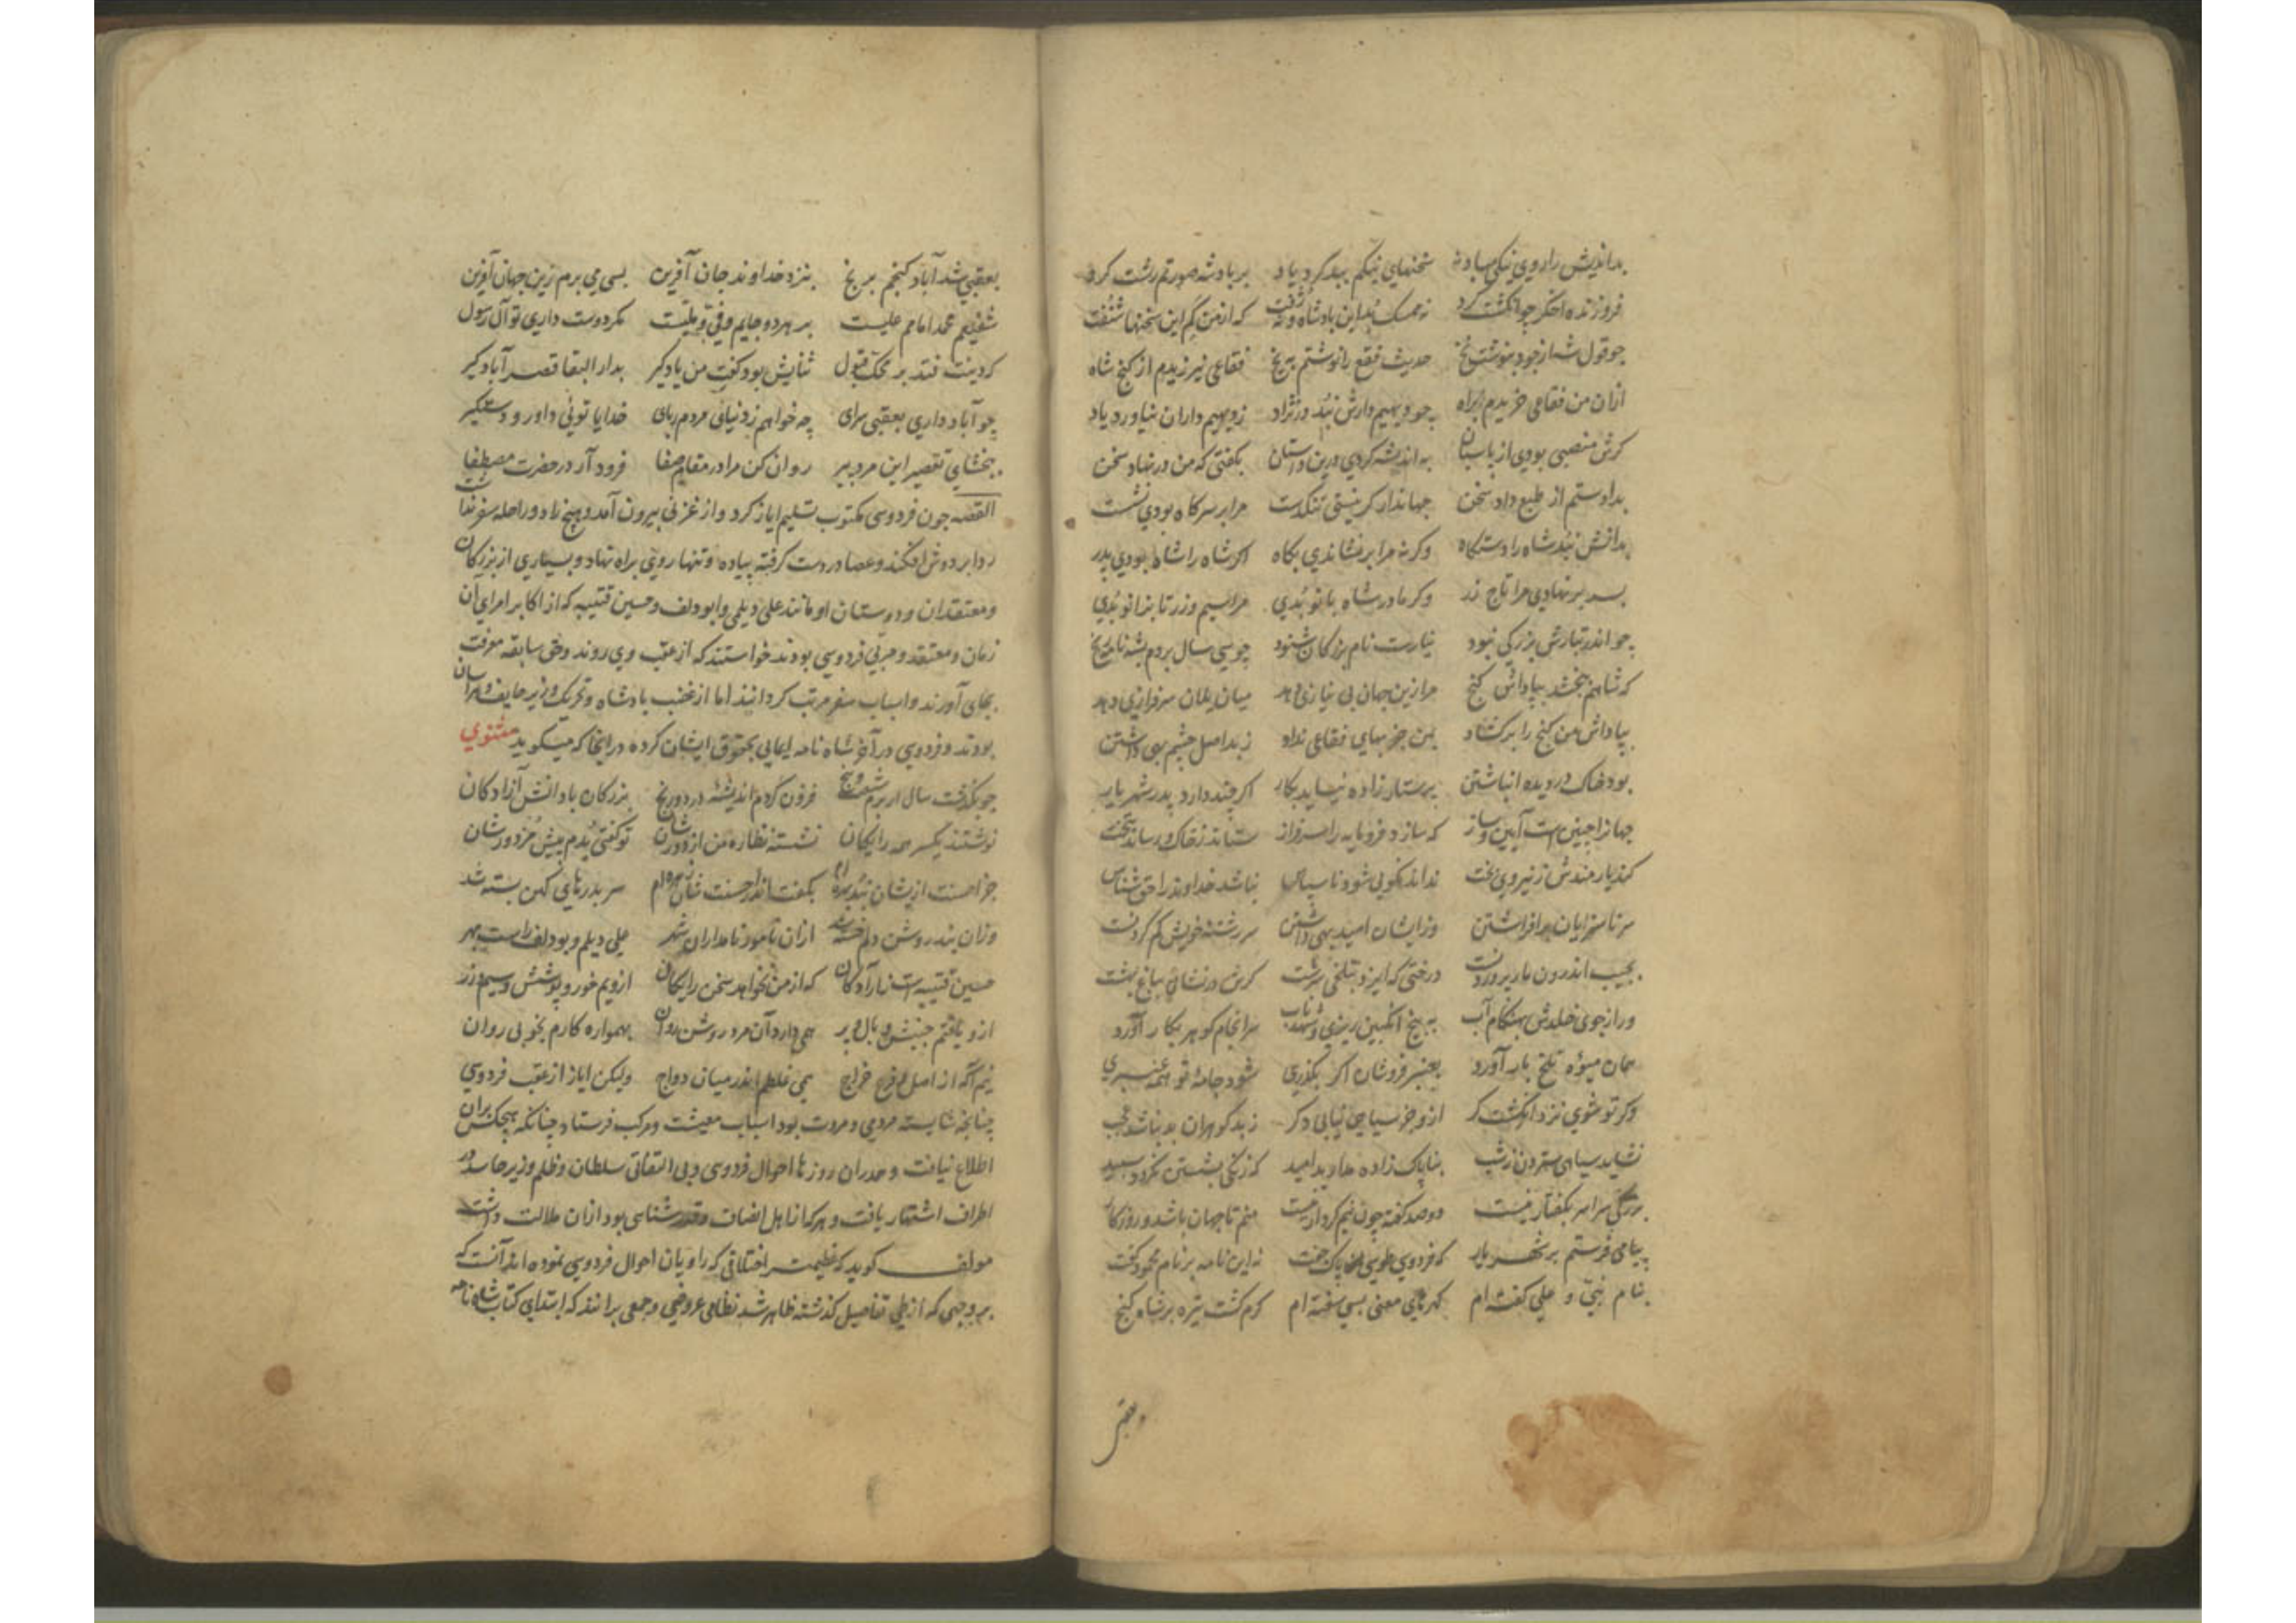 بداندیش را روی نیکی مباد سخنهای نیکم ببد کرد یاد بر پادشه صورتم زشت کرد
فروزنده اخکر چو انکشت کرد که از من کم این سخنها شنفت
چو قول شه از خود حدیث فقع را نوشتم به یخ فقاعی نیرزیدم از کنج شاه
ازان من فقاعی خریدم براه چو دیهیم دارش نبد در نژاد ز دیهیم داران نیاورد یاد
کرش منصبی بودی از باستان به اندیشه کردی درین داستان بکفتی که من در نهاد سخن
بدادستم از طبع داد سخن جهاندار کر نیستی تنکدست مرا بر سر کاه بودی نشست
بدانش نبد شاه را دستکاه وکرنه مرا برنشاندی بکاه اکر شاه را شاه بودی پدر
بسر بر نهادی مرا تاج زر وکر مادر شاه بانو بدی مرا سیم و زر تا بزانو بدی
چو اندر تبارش بزرکی نبود نیارست نام بزرکان شنود چو سی سال بردم بشهنامه رنج
که شاهم ببخشد بپاداش کنج مرا زین جهان بی نیازی دهد میان یلان سرفرازی دهد
بپاداش من کنج را برکشاد بمن جز بهای فقاعی نداد ز بد اصل چشم بهی داشتن
بود خاک در دیده انباشتن پرستار زاده نیاید بکار اکر چند دارد پدر شهریار
جهانرا چنین است آیین و ساز که سازد فرومایه را سرفراز ستاند ز خاک و رساند بتخت
کند یارمندش ز نیروی بخت نداند نکویی شود ناسپاس نباشد خداوند را حق شناس
سر ناسزایان برافراشتن وز ایشان امید بهی داشتن سر رشته خویش کم کردنست
بجیب اندرون مار پروردنست درختی که تلخی سرشت کرش در نشانی بباغ بهشت
ور از جوی خلدش بهنکام آب به بیخ انکبین ریزی و شهد ناب سرانجام کوهر بکار آورد
همان میوه تلخ بار آورد بعنبر فروشان اکر بکذری شود جامه تو همه عنبری
وکر تو شوی نزد انکشت کر ازو جز سیاهی نیابی دکر ز بد کوهران بد نباشد عجب
نشاید سیاهی ستردن ز شب بناپاک زاده مدارید امید که زنکی بشستن نکردد سپید
بزرکی سراسر بکفتار نیست دو صد کفته چون نیم کردار نیست منم تا جهان باشد و روزکار
پیامی فرستم بر شهریار که فردوسی طوسی پاک جفت نه این نامه بر نام محمود کفت
بنام نبی و علی کفته ام کهرهای معنی بسی سفته ام کرم کشت تیره بر شاه کنج
بعقبی شد آباد کنجم برنج بنزد خداوند جان آفرین بسی می برم زین جهان آفرین
شفیعم محمد امامم علیست بهر دو جایم وفی و ملیست مکر دوست داری تو آل رسول
کردینت فتد بر محک قبول ثنایش بود کفت من یادکیر بدار البقا قصر آبادکیر
چو آباد داری بعقبی سرای چه خواهم ز دنیائی مردم ربای خدایا توئی داور و دستکیر
ببخشای تقصیر این مرد پیر روان کن مرا در مقام صفا فرود آر در حضرت مصطفا
القصه چون فردوسی مکتوب تسلیم ایاز کرد و از غزنی بیرون آمد و هیچ زاد و راحله سفر نداشت
ردا بر دوش افکند و عصا در دست کرفته پیاده و تنها روی براه نهاد و بسیاری از بزرکان
و معتقدان و دوستان او مانند علی دیلمی و ابودلف و حسین قتیبه که از اکابر امرای آن
زمان و معتقد و مربی فردوسی بودند خواستند که از عقب وی روند و حق سابقه معرفت
بجای آورند و اسباب سفر مرتب کردانند اما از غضب پادشاه و تحریک وزیر خایف و هراسان
بودند و فردوسی در آخر شاه نامه ایمایی بحقوق ایشان کرده در آنجا که میکوید مثنوی
چو بکذشت سال از برم شصت و پنج فزون کردم اندیشه درد و رنج بزرکان با دانش آزادکان
نوشتند یکسر همه رایکان نشسته نظاره من از دورشان تو کفتی بدم پیش مزدورشان
جز احسنت ازیشان نبد بهره ام بکفت اندر احسنت شان زهره ام سر بدرهای کهن بسته شد
وزان بند روشن دلم خسته شد ازان نامور نامداران شهر علی دیلم و بودلف راست بهر
حسین قتیبه است از آزادکان که از من نخواهد سخن رایکان ازویم خور و پوشش و سیم و زر
ازو یافتم جنبش و بال و پر همی دارد آن مرد روشن روان همواره کارم بخوبی روان
نیم آکه از اصل و فرع خراج همی غلطم اندر میان دواج ولیکن ایاز از عقب فردوسی
چنانچه شایسته مردمی و مروت بود اسباب معیشت و مرکب فرستاد چنانکه هیچکس بران
اطلاع نیافت و هم دران روزها احوال فردوسی و بی التفاتی سلطان و ظلم وزیر حاسد در
اطراف اشتهار یافت و هر که از اهل انصاف و قدرشناسی بود ازان ملالت داشت
مولف کوید که عظیمتر اختلافی که راویان احوال فردوسی نموده اند آنست که
بر وجهی که از طی تفاصیل کذشته ظاهر شد نظامی عروضی و جمعی برانند که ابتدای کتاب شاه نامه